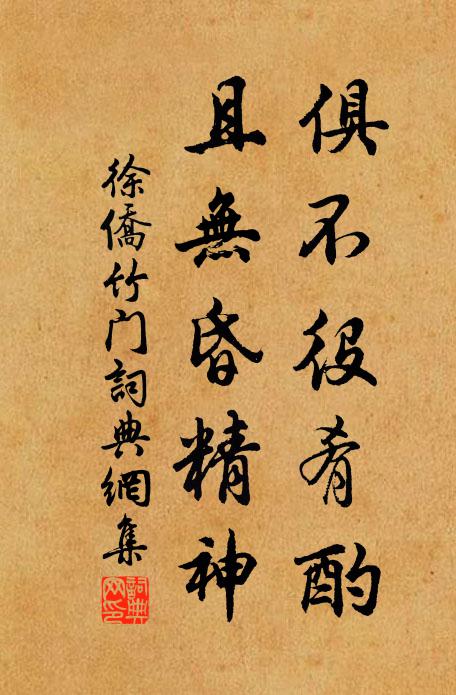 俱不役肴酌
且無昏精神
徐僑竹门詞典網集
詞典網印